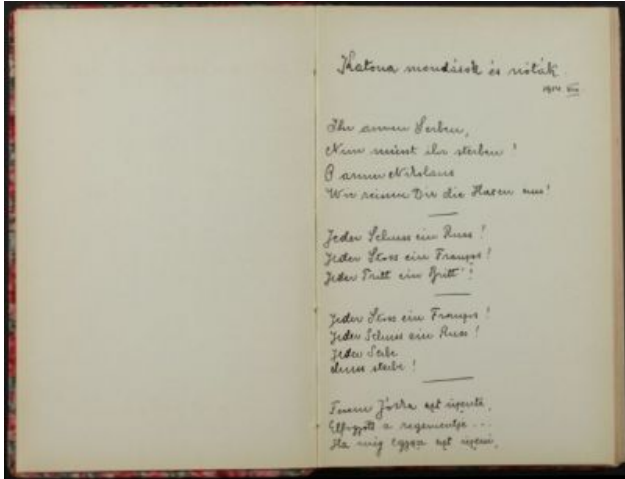 Katona mondások és nóták.
1914. VIII.
Ihr armen Serben,
Nun müsst ihr sterben!
O armer Nikolaus
Wir reissen Dir die Haren aus!
Jeder Schuss ein Russ!
Jeder Stoss ein Franzos!
Jeder Tritt ein Britt!
Jeder Stoss ein Franzos!
Jeder Schuss ein Russ!
Jeder Serbe
Muss sterbe!
Ferenc Jóska azt üzente,
Elfogyott a regementje...
Ha még egyszer azt üzeni,